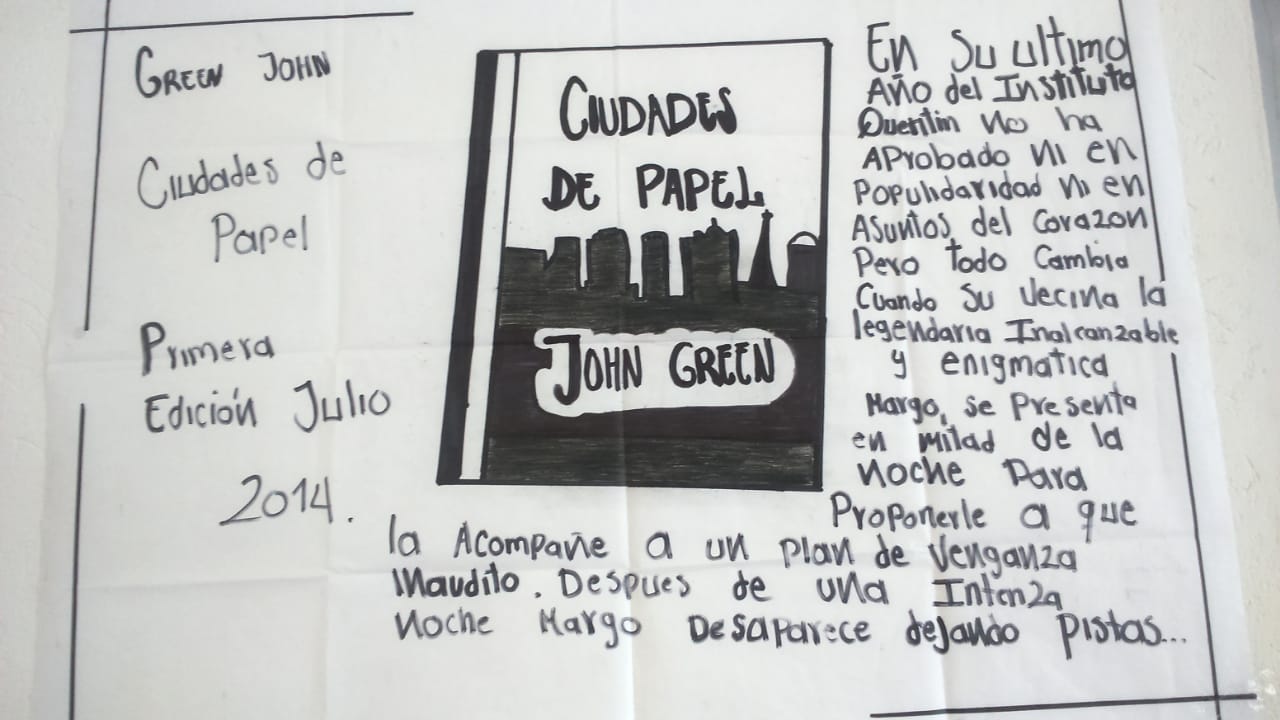 GREEN JOHN
Ciudades de
Papel
Primera
Edición Julio
2014.
CIUDADES
DE PAPEL
JOHN GREEN
En Su ultimo
Año del Instituto
Quentin No ha
Aprobado ni en
Populidaridad ni en
Asuntos del Corazon
Pero todo Cambia
Cuando Su Vecina la
legendaria Inalcanzable
y enigmatica
Margo, se Presenta
en mitad de la
Noche Para
Proponerle a que
la Acompañe a un plan de Venganza
Inaudito. Despues de una Intenza
Noche Margo Desaparece dejando Pistas...